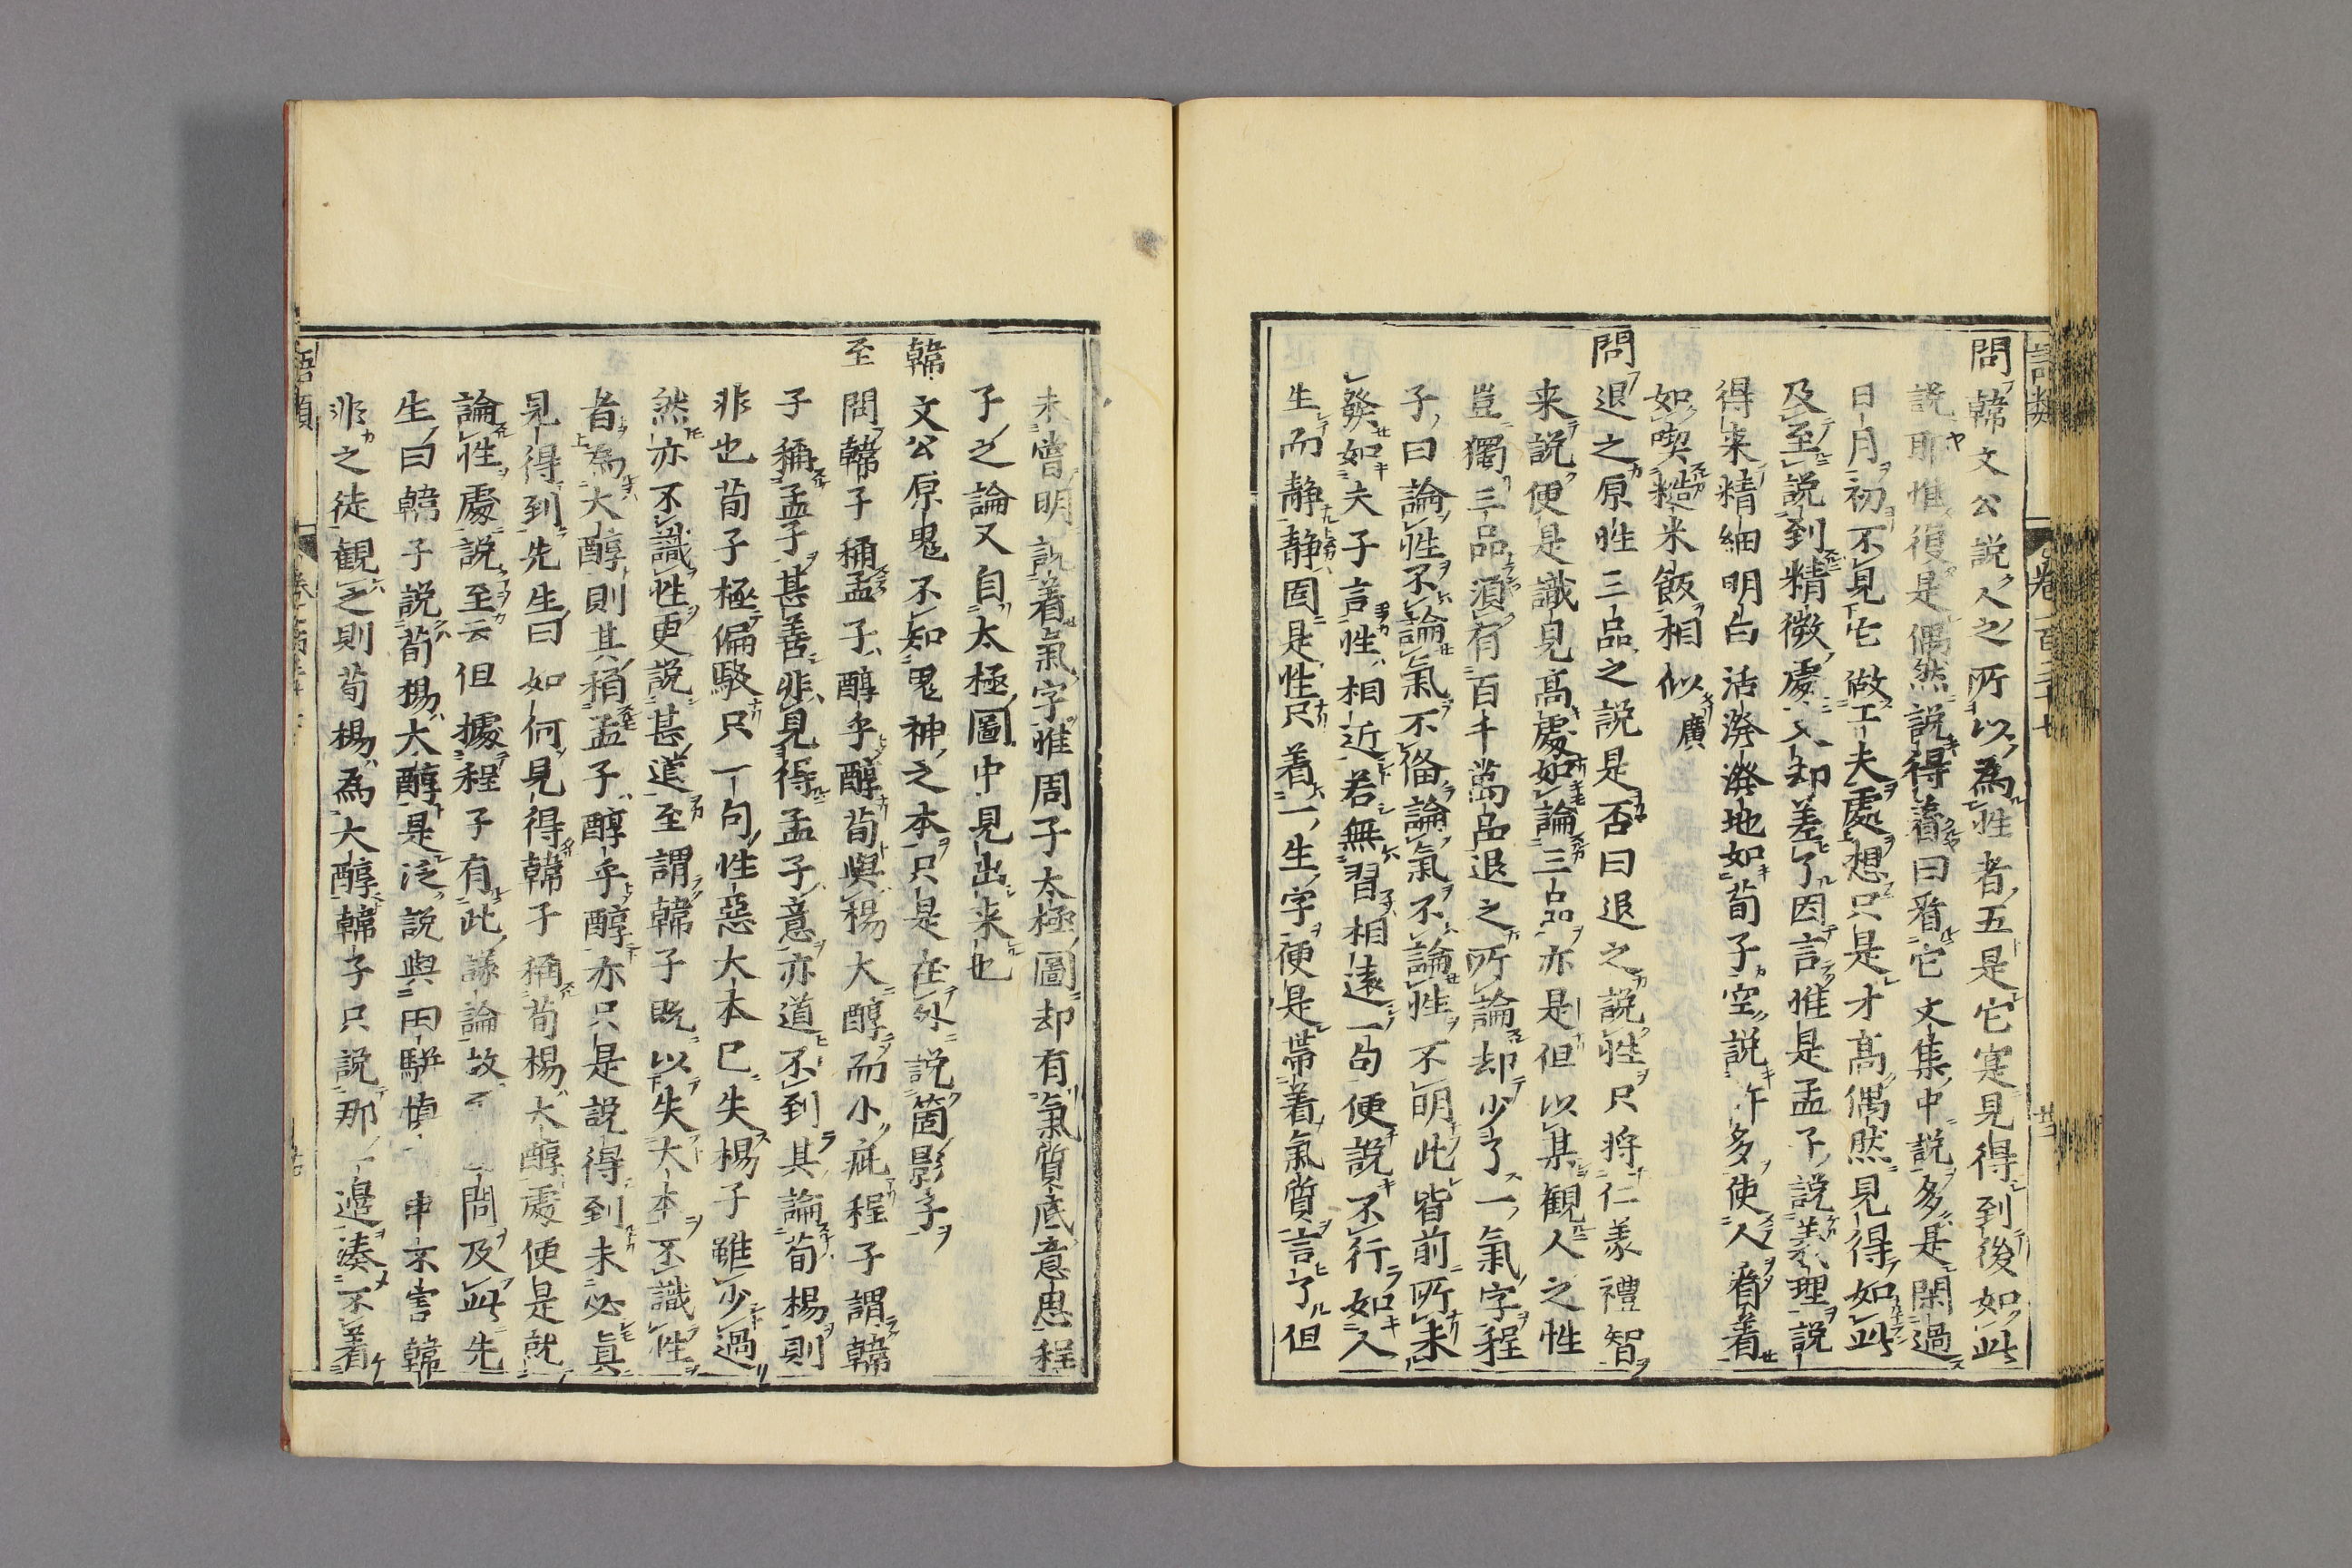 問韓文公説人之所以為性者五是它寔見得到後如此
説耶惟復是偶然説得着曰看它文集中説多是閑過
日月初不見它做工夫處想只是才高偶然見得如此
及至説到精微處又却差了因言惟是孟子説義理説
得来精細明白活潑潑地如荀子空説許多使人看着
如喫糙米飯相似廣
問退之原性三品之説是否曰退之説性只将仁義禮智
来説便是識見高處如論三品亦是但以某観人之性
豈獨三品須有百千萬品退之所論却少了一氣字程
子曰論性不論氣不備論氣不論性不明此皆前所未
發如夫子言性相近若無習相遠一句便説不行如人
生而静静固是性只着一生字便是帯着氣質言了但
未嘗明説着氣字惟周子太極圖却有氣質底意思程
子之論又自太極圖中見出来也
韓文公原鬼不知鬼神之本只是在外説箇影子
至問韓子稱孟子醇乎醇荀與楊大醇而小疵程子謂韓
子稱孟子甚善非見得孟子意亦道不到其論荀楊則
非也荀子極偏駁只一句性惡大本已失楊子雖少過
然亦不識性更説甚道至謂韓子既以失大本不識性
者為大醇則其稱孟子醇乎醇亦只是説得到未必真
見得到先生曰如何見得韓子稱荀楊大醇處便是就
論性處説至云但據程子有此議論故 問及此先
生曰韓子説荀楊大醇是泛説與田駢慎 申不害韓
非之徒観之則荀楊為大醇韓子只説那一邊湊不着